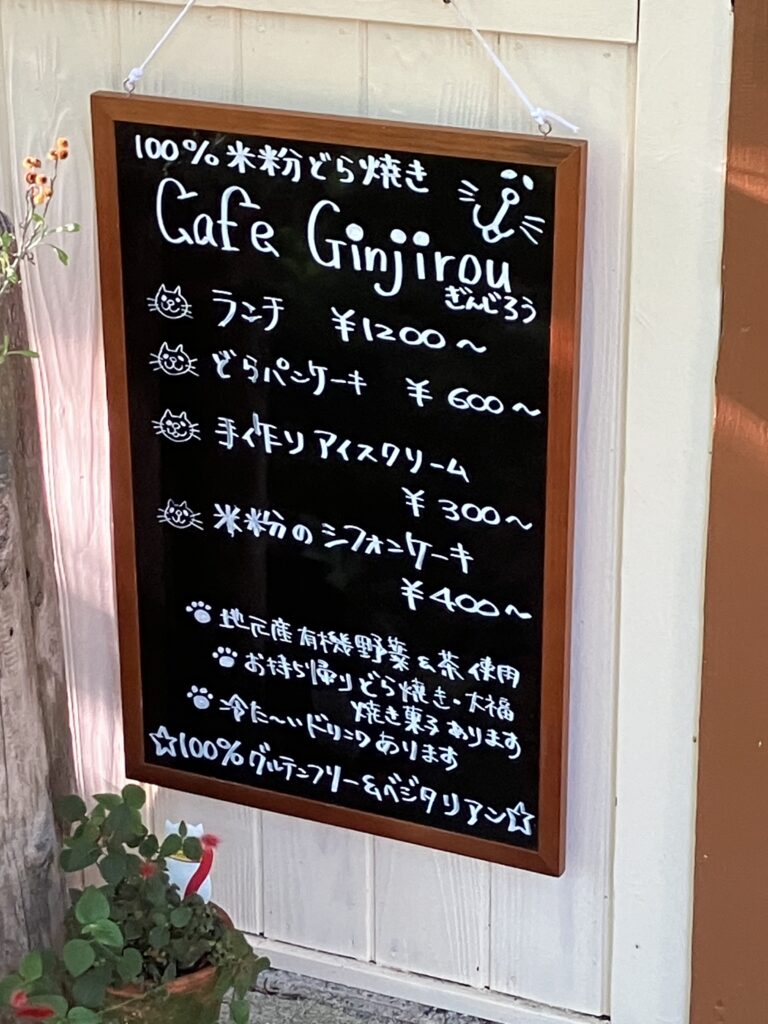 100%米粉どら焼き
Cafe Ginjirou
ぎんじろう
ランチ ¥1200〜
どらパンケーキ ¥600〜
手作りアイスクリーム
¥300〜
米粉のシフォンケーキ
¥400〜
地元産有機野菜&茶使用
お持ち帰りどら焼き・大福
焼き菓子あります
冷た〜いドリンクあります
☆100%グルテンフリー&ベジタリアン☆